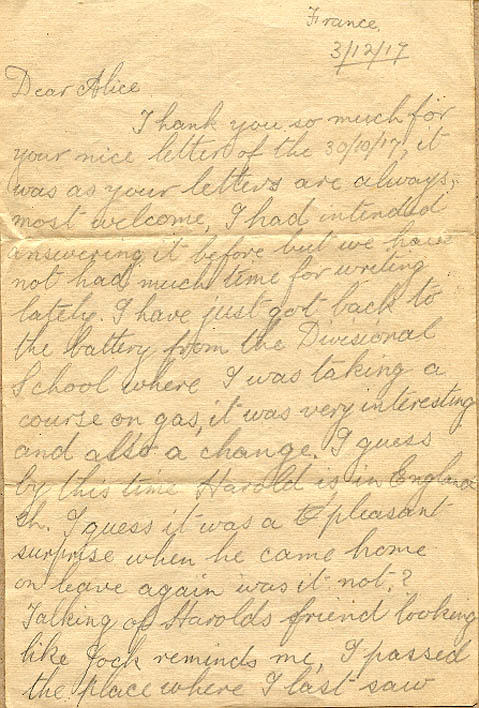 France
3/12/17
Dear Alice
Thank you so much for
your nice letter of the 30/10/17, it
was as your letters are always,
most welcome, I had intended
answering it before but we have
not had much time for writing
lately. I have just got back to
the battery from the Divisional
School where I was taking a
course on gas, it was very interesting
and also a change. I guess
by this time Harold is in England
eh. I guess it was a pleasant
surprise when he came home
on leave again was it not?
Talking of Harolds friend looking
like Jock reminds me, I passed
the place where I last saw